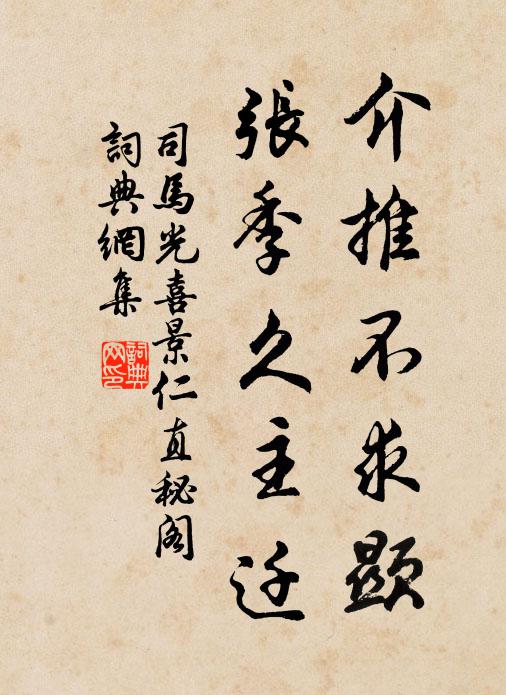 介推不求顯
張季久主迁
司馬光喜景仁直秘閣
詞典網集
詞典网印